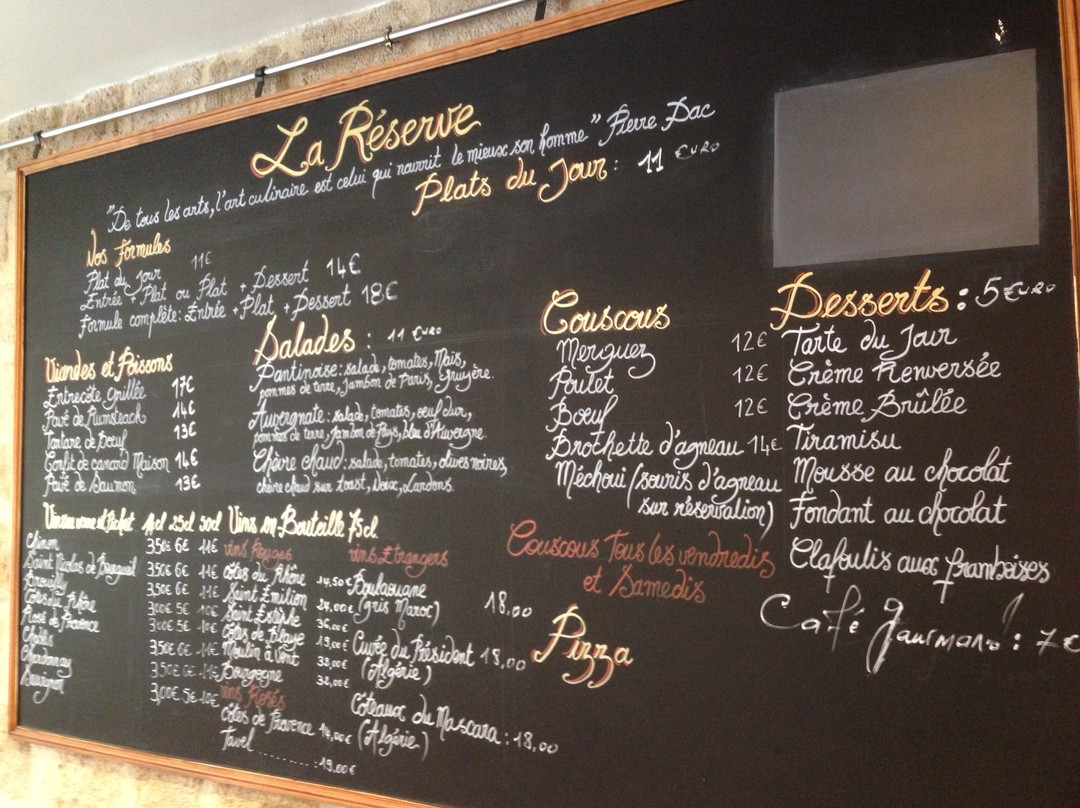 La Réserve
"De tous les arts, l'art culinaire est celui qui nourrit le mieux son homme" Pierre Dac
Plats du Jour : 11 Euro
Nos Formules
Plat du Jour 11€
Entrée + Plat ou Plat + Dessert 14€
Formule complète: Entrée + Plat + Dessert 18€
Viandes et Poissons
Entrecôte grillée 17€
Pavé de Rumsteack 14€
Tartare de Boeuf 13€
Confit de canard Maison 14€
Pavé de Saumon 13€
Salades : 11 Euro
Pantinoise: salade, tomates, Maïs,
pommes de terre, Jambon de Paris, Gruyère.
Auvergnate: salade, tomates, oeuf dur,
pommes de terre, Jambon de Pays, bleu d'Auvergne.
Chèvre chaud: salade, tomates, olives noires,
chèvre chaud sur toast, Noix, Lardons.
Couscous
Merguez 12€
Poulet 12€
Boeuf 12€
Brothette d'agneau 14€
Méchoui (souris d'agneau
sur réservation)
Couscous Tous les vendredis
et Samedis
Pizza
Desserts : 5 Euro
Tarte du Jour
Crème Renversée
Crème Brûlée
Tiramisu
Mousse au chocolat
Fondant au chocolat
Clafoulis aux framboises
Café Gourmand : 7€
Vins au verre et Pichet 25cl 50cl
Chinon 3,50€ 6€ 11€
Saint Nicolas de Bourgueil 3,50€ 6€ 11€
Brouilly 3,50€ 6€ 11€
Côtes du Rhône 3,00€ 5€ 10€
Rosé de Provence 3,00€ 5€ 10€
Chablis 3,50€ 6€ 11€
Chardonnay 3,50€ 6€ 11€
Sauvignon 3,00€ 5€ 10€
Vins en Bouteille 75cl
vins Rouges
Côtes du Rhône 14,50€
Saint Emilion 24,00€
Saint Estèphe 36,00€
Côtes de Blaye 19,00€
Moulin à Vent
Bourgogne 32,00€
vins Rosés
Côtes de Provence 14,00€
Tavel ........ : 19,00€
vins Etrangers
Boulaouane
(gris Maroc) 18,00
Cuvée du Président 18,00
(Algérie)
Coteaux du Mascara : 18,00
(Algérie)